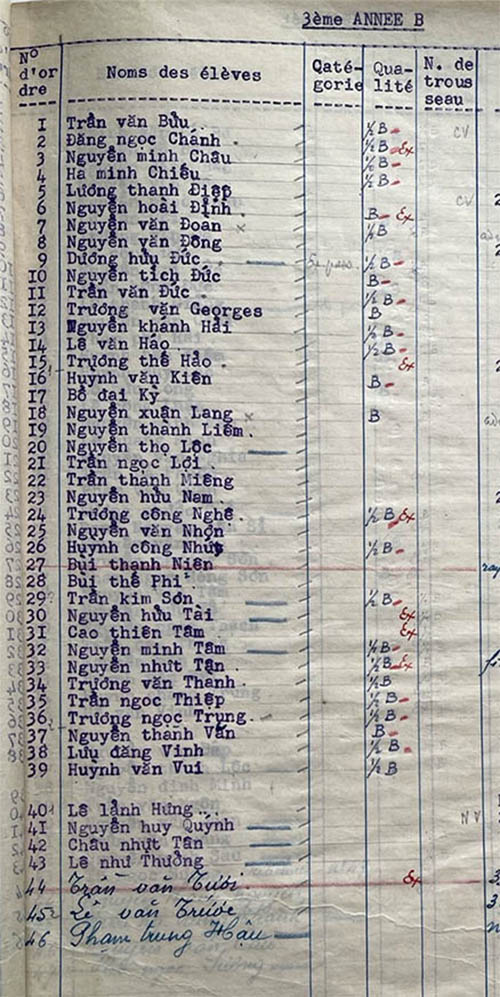 3ème ANNEE B
N° d'or dre Noms des élèves Qaté- gorie Qua- lité N. de trous seau
1 Trần văn Bửu ½ B CV
2 Đặng ngọc Chánh ½ B Ex
3 Nguyễn minh Châu ½ B
4 Hà minh Chiếu ½ B
5 Lương thanh Điệp CV
6 Nguyễn hoài Định B Ex
7 Nguyễn văn Đoan ½ B
8 Nguyễn văn Đông
9 Dương hữu Đức ½ B
10 Nguyễn tích Đức B
11 Trần văn Đức ½ B
12 Trương văn Georges B
13 Nguyễn khánh Hải ½ B
14 Lê văn Hảo ½ B
15 Trương thế Hảo Ex
16 Huỳnh văn Kiên B
17 Bồ đại Kỳ
18 Nguyễn xuân Lang B
19 Nguyễn thanh Liêm
20 Nguyễn thọ Lộc
21 Trần ngọc Lợi
22 Trần thanh Miêng
23 Nguyễn hữu Nam
24 Trương công Nghê ½ B Ex
25 Nguyễn văn Nhơn
26 Huỳnh công Nhứt ½ B
27 Bùi thanh Niên
28 Bùi thế Phi
29 Trần kim Sơn ½ B
30 Nguyễn hữu Tài Ex
31 Cao thiên Tâm Ex
32 Nguyễn minh Tâm ½ B
33 Nguyễn nhứt Tân ½ B Ex
34 Trương văn Thanh ½ B
35 Trần ngọc Thiệp B
36 Trương ngọc Trung ½ B
37 Nguyễn thanh Vân B
38 Lưu đăng Vinh ½ B
39 Huỳnh văn Vui ½ B
40 Lê lãnh Hưng NV
41 Nguyễn huy Quỳnh
42 Châu nhựt Tân
43 Lê như Thưởng
44 Trần văn Tươi Ex
45 Lê văn Trước
46 Phạm trung Hậu